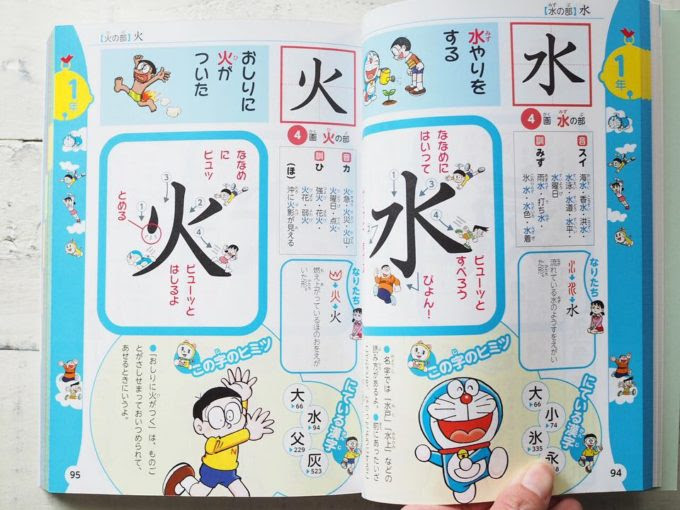 【水の部】水
1年
水
4画 水の部
水やりを
する
音 スイ
海水・香水・洪水・
水泳・水道・水平・
水曜日
訓 みず
雨水・打ち水・
氷水・水色・水着
ななめに
はいって
ピューッと
すべろう
ぴょん！
1
2
3
4
水
なりたち
水
流れている水のようすをえがい
た形。
この字のヒミツ
●名字では「水戸」「水上」などの
にている漢字
大
66
小
74
氷
335
永
94
【火の部】火
1年
火
4画 火の部
おしりに
火が
ついた
音 カ
火急・火災・火山・
火曜日・点火
訓 ひ
強火・花火・
火花・弱火
（ほ）
沖に火影が見える
ななめ
に
ピュッ
とめる
ピューッと
はしるよ
1
2
3
4
火
なりたち
火
燃え上がっているほのおをえが
いた形。
この字のヒミツ
●「おしりに火がつく」は、ものご
とがさしせまっておいつめられて、
あせるときにいうよ。
にている漢字
大
66
水
94
父
229
灰
523
95